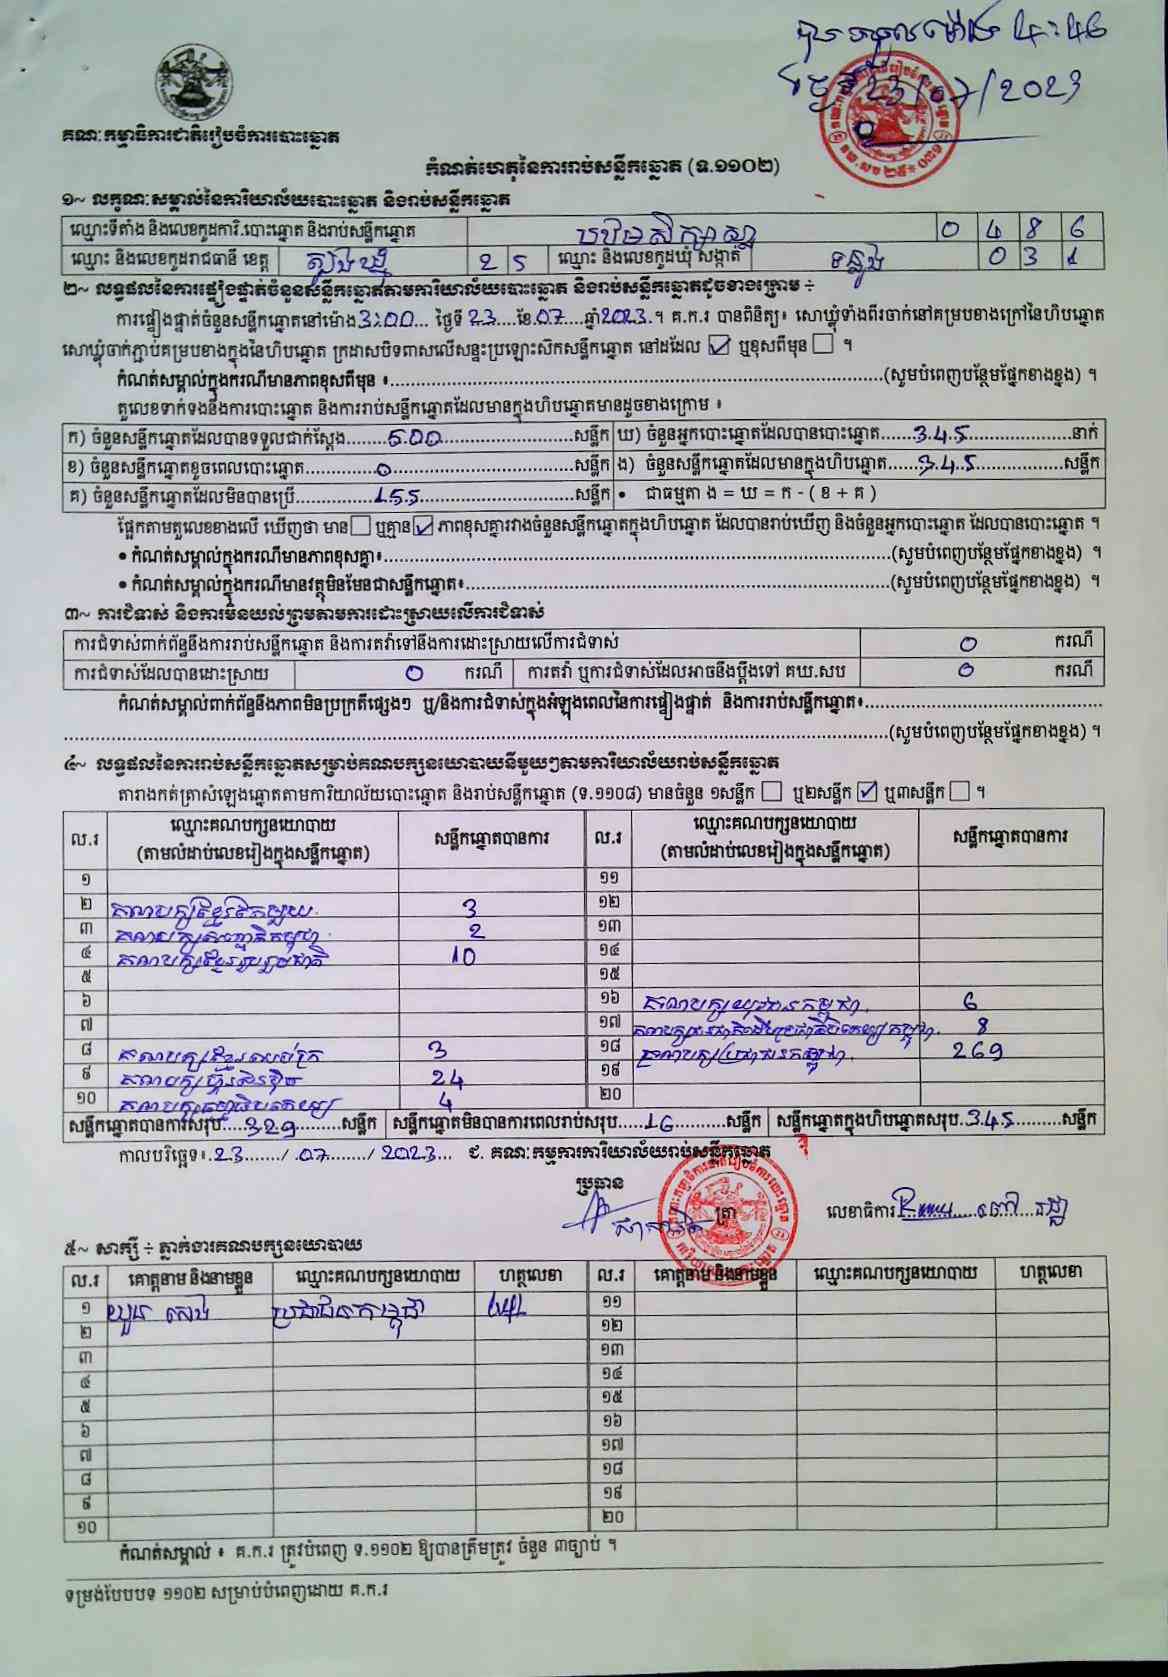 ៤:46
23/07/2023
គណៈកម្មាធិការជាតិរៀបចំការបោះឆ្នោត
កំណត់ហេតុនៃការរាប់សន្លឹកឆ្នោត (ទ.១១០២)
១~ លក្ខណៈសម្គាល់នៃការិយាល័យបោះឆ្នោត និងរាប់សន្លឹកឆ្នោត
ឈ្មោះទីតាំង និងលេខកូដការិ.បោះឆ្នោត និងរាប់សន្លឹកឆ្នោត បឋមសិក្សា 0 4 8 6
ឈ្មោះ និងលេខកូដរាជធានី ខេត្ត ត្បូងឃ្មុំ 2 5 ឈ្មោះ និងលេខកូដឃុំ សង្កាត់ ទន្លូង 0 3 1
២~ លទ្ធផលនៃការផ្ទៀងផ្ទាត់ចំនួនសន្លឹកឆ្នោតតាមការិយាល័យបោះឆ្នោត និងរាប់សន្លឹកឆ្នោតដូចខាងក្រោម ÷
ការផ្ទៀងផ្ទាត់ចំនួនសន្លឹកឆ្នោតនៅម៉ោង 3:00 ថ្ងៃទី 23 ខែ 07 ឆ្នាំ 2023 ។ គ.ក.រ បានពិនិត្យ៖ សោឃ្លុំទាំងពីរចាក់នៅគម្របខាងក្រៅនៃហិបឆ្នោត
សោឃ្លុំចាក់ភ្ជាប់គម្របខាងក្នុងនៃហិបឆ្នោត ក្រដាសបិទពាសលើសន្ទះប្រឡោះសិកសន្លឹកឆ្នោត នៅដដែល ☑ ឬខុសពីមុន ☐ ។
កំណត់សម្គាល់ក្នុងករណីមានភាពខុសពីមុន ៖ (សូមបំពេញបន្ថែមផ្នែកខាងខ្នង) ។
តួលេខទាក់ទងនឹងការបោះឆ្នោត និងការរាប់សន្លឹកឆ្នោតដែលមានក្នុងហិបឆ្នោតមានដូចខាងក្រោម ៖
ក) ចំនួនសន្លឹកឆ្នោតដែលបានទទួលជាក់ស្តែង 500 សន្លឹក ឃ) ចំនួនអ្នកបោះឆ្នោតដែលបានបោះឆ្នោត 345 នាក់
ខ) ចំនួនសន្លឹកឆ្នោតខូចពេលបោះឆ្នោត 0 សន្លឹក ង) ចំនួនសន្លឹកឆ្នោតដែលមានក្នុងហិបឆ្នោត 345 សន្លឹក
គ) ចំនួនសន្លឹកឆ្នោតដែលមិនបានប្រើ 155 សន្លឹក • ជាធម្មតា ង = ឃ = ក - ( ខ + គ )
ផ្អែកតាមតួលេខខាងលើ ឃើញថា មាន ☐ ឬគ្មាន ☑ ភាពខុសគ្នារវាងចំនួនសន្លឹកឆ្នោតក្នុងហិបឆ្នោត ដែលបានរាប់ឃើញ និងចំនួនអ្នកបោះឆ្នោត ដែលបានបោះឆ្នោត ។
• កំណត់សម្គាល់ក្នុងករណីមានភាពខុសគ្នា៖ (សូមបំពេញបន្ថែមផ្នែកខាងខ្នង) ។
• កំណត់សម្គាល់ក្នុងករណីមានវត្ថុមិនមែនជាសន្លឹកឆ្នោត៖ (សូមបំពេញបន្ថែមផ្នែកខាងខ្នង) ។
៣~ ការជំទាស់ និងការមិនយល់ព្រមតាមការដោះស្រាយលើការជំទាស់
ការជំទាស់ពាក់ព័ន្ធនឹងការរាប់សន្លឹកឆ្នោត និងការតវ៉ាទៅនឹងការដោះស្រាយលើការជំទាស់ 0 ករណី
ការជំទាស់ដែលបានដោះស្រាយ 0 ករណី ការតវ៉ា ឬការជំទាស់ដែលអាចនឹងប្ដឹងទៅ គឃ.សប 0 ករណី
កំណត់សម្គាល់ពាក់ព័ន្ធនឹងភាពមិនប្រក្រតីផ្សេងៗ ឬ/និងការជំទាស់ក្នុងអំឡុងពេលនៃការផ្ទៀងផ្ទាត់ និងការរាប់សន្លឹកឆ្នោត៖
(សូមបំពេញបន្ថែមផ្នែកខាងខ្នង) ។
៤~ លទ្ធផលនៃការរាប់សន្លឹកឆ្នោតសម្រាប់គណបក្សនយោបាយនីមួយៗតាមការិយាល័យរាប់សន្លឹកឆ្នោត
តារាងកត់ត្រាសំឡេងឆ្នោតតាមការិយាល័យបោះឆ្នោត និងរាប់សន្លឹកឆ្នោត (ទ.១១០៨) មានចំនួន ១សន្លឹក ☐ ឬ២សន្លឹក ☑ ឬ៣សន្លឹក ☐ ។
ល.រ ឈ្មោះគណបក្សនយោបាយ (តាមលំដាប់លេខរៀងក្នុងសន្លឹកឆ្នោត) សន្លឹកឆ្នោតបានការ ល.រ ឈ្មោះគណបក្សនយោបាយ (តាមលំដាប់លេខរៀងក្នុងសន្លឹកឆ្នោត) សន្លឹកឆ្នោតបានការ
១ ១១
២ គណបក្សខ្មែរតែមួយ 3 ១២
៣ គណបក្ស 2 ១៣
៤ គណបក្សខ្មែររួបរួមជាតិ 10 ១៤
៥ ១៥
៦ ១៦ គណបក្សយុវជនកម្ពុជា 6
៧ ១៧ គណបក្ស 8
៨ គណបក្សខ្មែរ 3 ១៨ គណបក្សប្រជាជនកម្ពុជា 269
៩ គណបក្សហ៊្វុនស៊ិនប៉ិច 24 ១៩
១០ គណបក្ស 4 ២០
សន្លឹកឆ្នោតបានការសរុប 329 សន្លឹក សន្លឹកឆ្នោតមិនបានការពេលរាប់សរុប 16 សន្លឹក សន្លឹកឆ្នោតក្នុងហិបឆ្នោតសរុប 345 សន្លឹក
កាលបរិច្ឆេទ៖ 23 / 07 / 2023 ជ. គណៈកម្មការការិយាល័យរាប់សន្លឹកឆ្នោត
ប្រធាន
ត្រា លេខាធិការ
៥~ សាក្សី ÷ ភ្នាក់ងារគណបក្សនយោបាយ
ល.រ គោត្តនាម និងនាមខ្លួន ឈ្មោះគណបក្សនយោបាយ ហត្ថលេខា ល.រ គោត្តនាម និងនាមខ្លួន ឈ្មោះគណបក្សនយោបាយ ហត្ថលេខា
១ ប្រជាជនកម្ពុជា ១១
២ ១២
៣ ១៣
៤ ១៤
៥ ១៥
៦ ១៦
៧ ១៧
៨ ១៨
៩ ១៩
១០ ២០
កំណត់សម្គាល់ ៖ គ.ក.រ ត្រូវបំពេញ ទ.១១០២ ឱ្យបានត្រឹមត្រូវ ចំនួន ៣ច្បាប់ ។
ទម្រង់បែបបទ ១១០២ សម្រាប់បំពេញដោយ គ.ក.រ